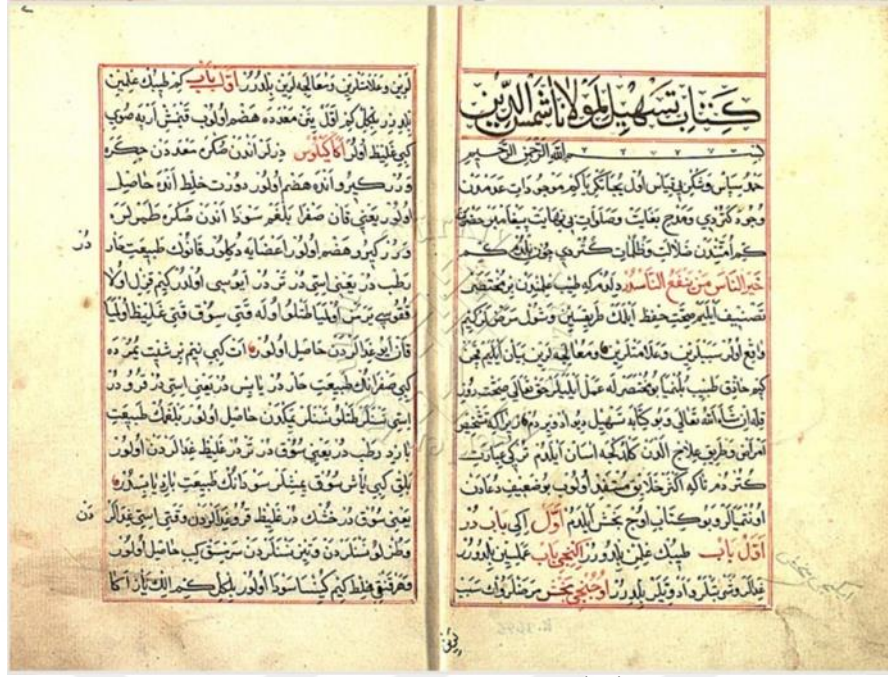 كتاب تسهيل لمولانا شمس الدين
بسم الله الرحمن الرحيم
حمد سپاس وشكر بی قیاس اول یجانکریا کم موجودات عدمدن
وجوده كتردی ومدح بغایت وصلوات بی نهایت پیغامبر حضرت
كم امتندن ضلالت وظلمات كتردی چون بلدم كم
خير الناس من ينفع الناسدر دلدم كه طبیب علمندن بر مختصر
تصنیف ایلیم صحت حفظ ایلمك طریقسین وشول مرض لر كیم
واقع اولور سببلرین وعلامتلرین ومعالجه لرین بیان ایلیم
كم حاذق طبیب بلنمیا بو مختصر له عمل ایلیلر حق تعالی صحت روز
قله ان شاء الله تعالی وبو كتابه تسهیل دیو اد ویردم زیرا كه تشخیص
امراض وطریق علاج الدن كلدكجه اسان ایلدم تركی عبارت
كتردم تا كه اكثر خلایق مستفید اولوب بو ضعیف دعادن
اونتمیالر وبو كتاب اوچ بخش ایلدم اول ایكی باب در
اول باب طبیبك علمن بلدرر ایكنجی باب عملین بلدرر
غدالر وشربتلر واد ویه لر بلدرر اوچنجی بخش مرضلروك سبب
لرین وعلامتلرین ومعالجه لرین بلدرر اول باب كم طبیبك علمین
بلدرر بلكل كم اول یین معدده هضم اولوب قینمش ارپه صویی
كبی غلیظ اولر اكا كیلوس درلر اندن صكره معده دن جكره
وررگیرو انده هضم اولور دورت خلط انده حاصل
اولور یعنی قان صفرا بلغم سودا اندن صكره طمرلره
ورر گیرو هضم اولور اعضایه دكلور قانوك طبیعت حار
رطب در یعنی استی در تر در ایوسی اولدر كیم قزل اولا
قوقوسی یرمز اولمیا طتلو اوله قتی سوق قتی غلیظ اولمیا
قان ایو غدالردن حاصل اولور
كبی صفرانك طبیعت حار در یابس در یعنی استی در قرودر
استی نسنلر طتلو نسنلر یمكدن حاصل اولور بلغمك طبیعت
بارد رطب در یعنی سوق در تر در غلیظ غدالردن اولور
بلق كبی یاش سوق یمشلر سودانك طبیعت بارد یابس در
یعنی سوق در خشك در غلیظ قرو غدالردن وقتی استی غدالر
دن
وطزلو نسنلردن وتیز نسنلردن سرمسق كبی حاصل اولور
وهر قنغی خلط كیم كینسا سودا اولور بلكل كم